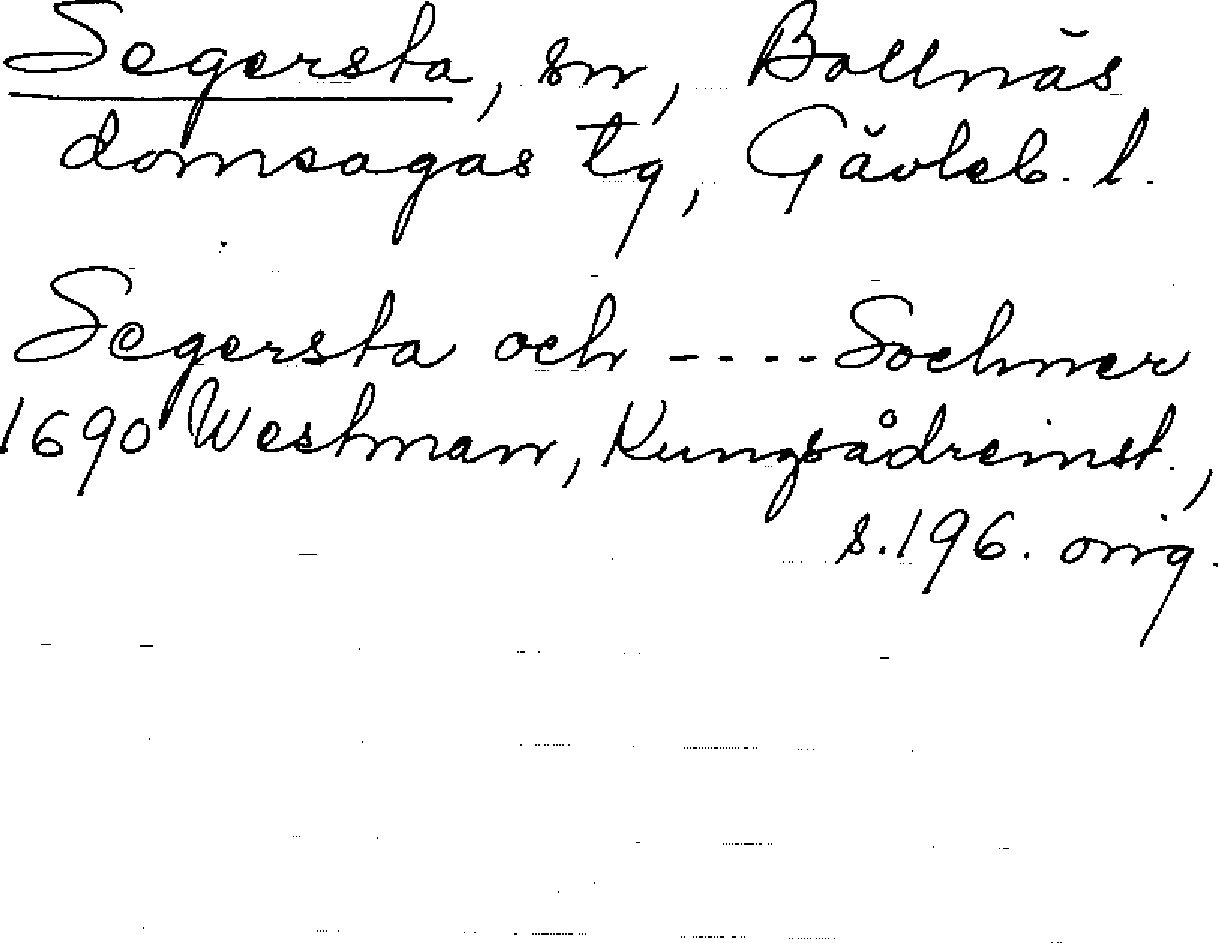 Segersta, sn, Bollnäs
domsagas tg, Gävleb. l.
Segersta och ---- Sochner
1690 Westman, Kungsådreinst.,
s. 196. orig.